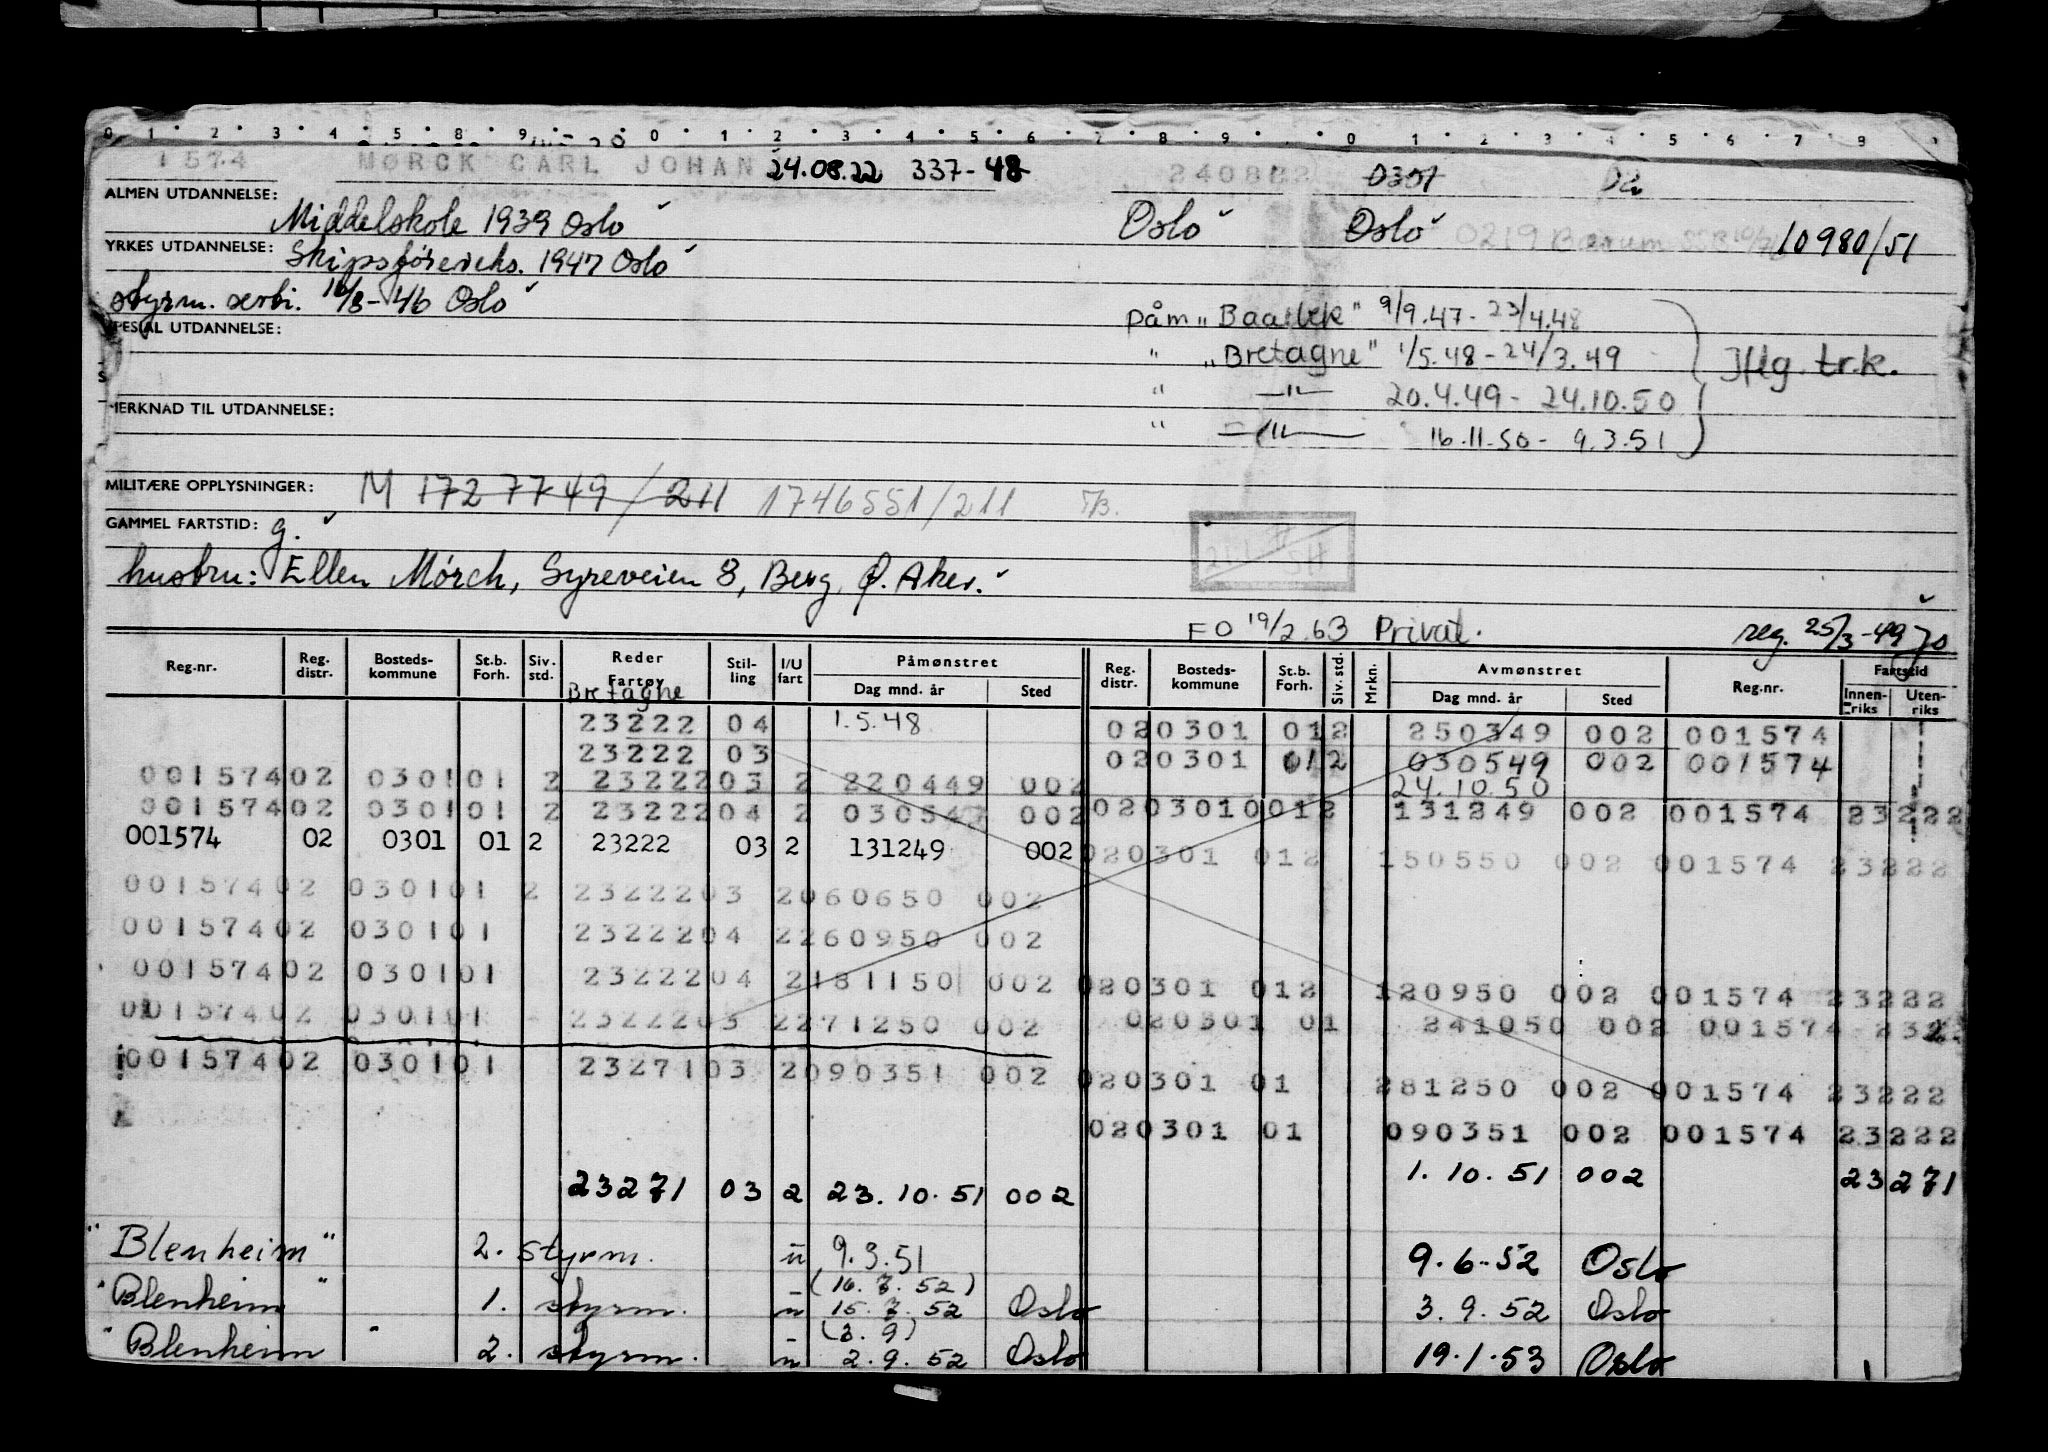 0 1 2 3 4 5 8 9 0 1 2 3 4 5 6 7 8 9 0 1 2 3 4 5 6 7 8 9
1574 MØRCK CARL JOHAN 24.08.22 337-48 240822 0301 02
ALMEN UTDANNELSE: Middelskole 1939 Oslo Oslo Oslo 0219 Bærum 10980/51
YRKES UTDANNELSE: Skipsförereks. 1947 Oslo
styrm. serti. 16/8-46 Oslo
SPESIAL UTDANNELSE:
påm „Baalbek" 9/9.47 - 23/4.48
" „Bretagne" 1/5.48 - 24/3.49 iflg. tr.k.
MERKNAD TIL UTDANNELSE: " —"— 20.4.49 - 24.10.50
" —"— 16.11.50 - 9.3.51
MILITÆRE OPPLYSNINGER: M 1727749/211 1746551/211
GAMMEL FARTSTID: g.
hustru: Ellen Mörch, Syreveien 8, Berg, Ø. Aker.
FO 19/2.63 Privat. reg. 25/3-49 Jo
Reg.nr. Reg. distr. Bosteds-kommune St.b. Forh. Siv. std. Reder Fartøy Stil-ling I/U fart Påmønstret Dag mnd. år Sted Reg. distr. Bosteds-kommune St.b. Forh. Siv. std. Mrkn. Avmønstret Dag mnd. år Sted Reg.nr. Fartstid Innen-riks Uten-riks
Bretagne
23222 04 1.5.48 020301 012 250349 002 001574
23222 03 020301 012 030549 002 001574
00157402 030101 2 2322203 2 220449 002 24.10.50
00157402 030101 2 2322204 2 030549 002 0203010012 131249 002 001574 23222
001574 02 0301 01 2 23222 03 2 131249 002 020301 012 150550 002 001574 23222
00157402 030101 2 2322203 2060650 002
00157402 030101 2322204 2260950 002
00157402 030101 2322204 2181150 002 020301 012 120950 002 001574 23222
00157402 030101 2322203 2271250 002 020301 01 241050 002 001574 232
00157402 030101 2327103 2090351 002 020301 01 281250 002 001574 23222
020301 01 090351 002 001574 23222
23271 03 2 23.10.51 002 1.10.51 002 23271
"Blenheim" 2. styrm. u 9.3.51 9.6.52 Oslo
(16.7.52)
"Blenheim" 1. styrm. u 15.7.52 Oslo 3.9.52 Oslo
(3.9)
"Blenheim" 2. styrm. u 2.9.52 Oslo 19.1.53 Oslo